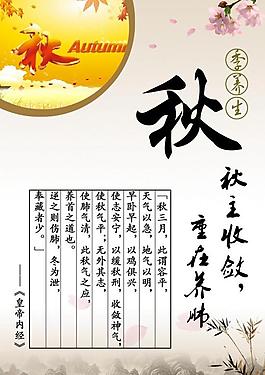 秋 Autumn
季养生
秋
秋主收敛，
重在养肺
「秋三月，此谓容平，
天气以急，地气以明，
早卧早起，以鸡俱兴，
使志安宁，以缓秋刑，收敛神气，
使秋气平；无外其志，
使肺气清，此秋气之应，
养首之道也。
逆之则伤肺，冬为泄，
奉藏者少。」
——《皇帝内经》